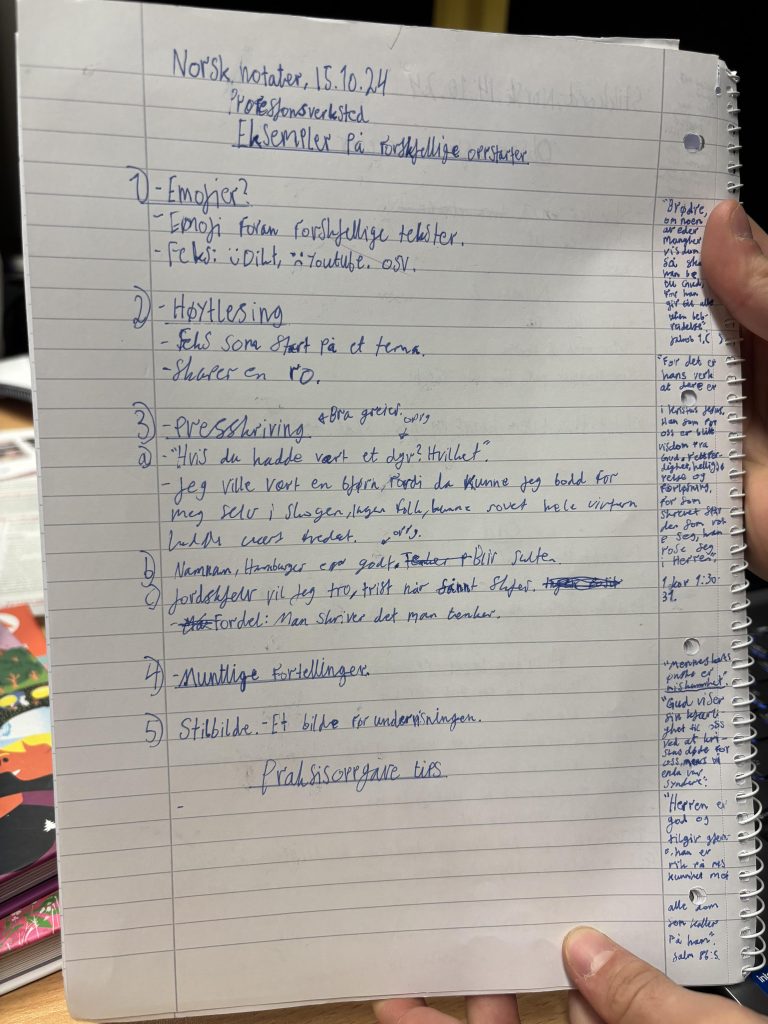 Norsk notater, 15.10.24
Profesjonsverksted
Eksempler på forskjellige oppstarter
1) - Emojier?
- Emoji foran forskjellige tekster.
- Feks: Dikt, Youtube. osv.
2) - Høytlesing
- Feks som start på et tema.
- Skaper en ro.
3) - Presskriving Bra greier. oppg
a) - "Hvis du hadde vært et dyr? Hvilket".
- Jeg ville vært en bjørn, fordi da kunne jeg bodd for
meg selv i skogen, folk, kunne sovet hele vintern
hadde vært fredet. oppg.
b) Namnam, Hamburger er godt. Blir sulten.
c) Jordskjelv vil jeg tro, trist når sånnt skjer.
- Fordel: Man skriver det man tenker.
4) - Muntlige fortellinger.
5) Stilbilde. - Et bilde før undervisningen.
Praksisoppgave tips
-
"Brødre,
om noen
av eder
mangler
visdom
så
han be
Gud,
for han
gir til alle
uten beb-
reidelse"
Jakob 1,
"For det er
hans verk
at dere er
i kristus Jesus.
Han som for
oss er blitt
visdom fra
Gud, rettfer-
dighet, hellig-
relse og
forløsning,
for som
skrevet
den som
seg, han
rose seg
i Herren".
1 kor 1:30-
31.
"Menneskets
er
miskunnhet"
"Gud viser
sin kjærli-
ghet til oss
ved at kri-
stus døde for
oss, mens vi
enda var
syndere".
"Herren er
god og
tilgir
han er
rik på mis
kunnhet mot
alle dem
som kaller
på ham".
Salm 86:5.